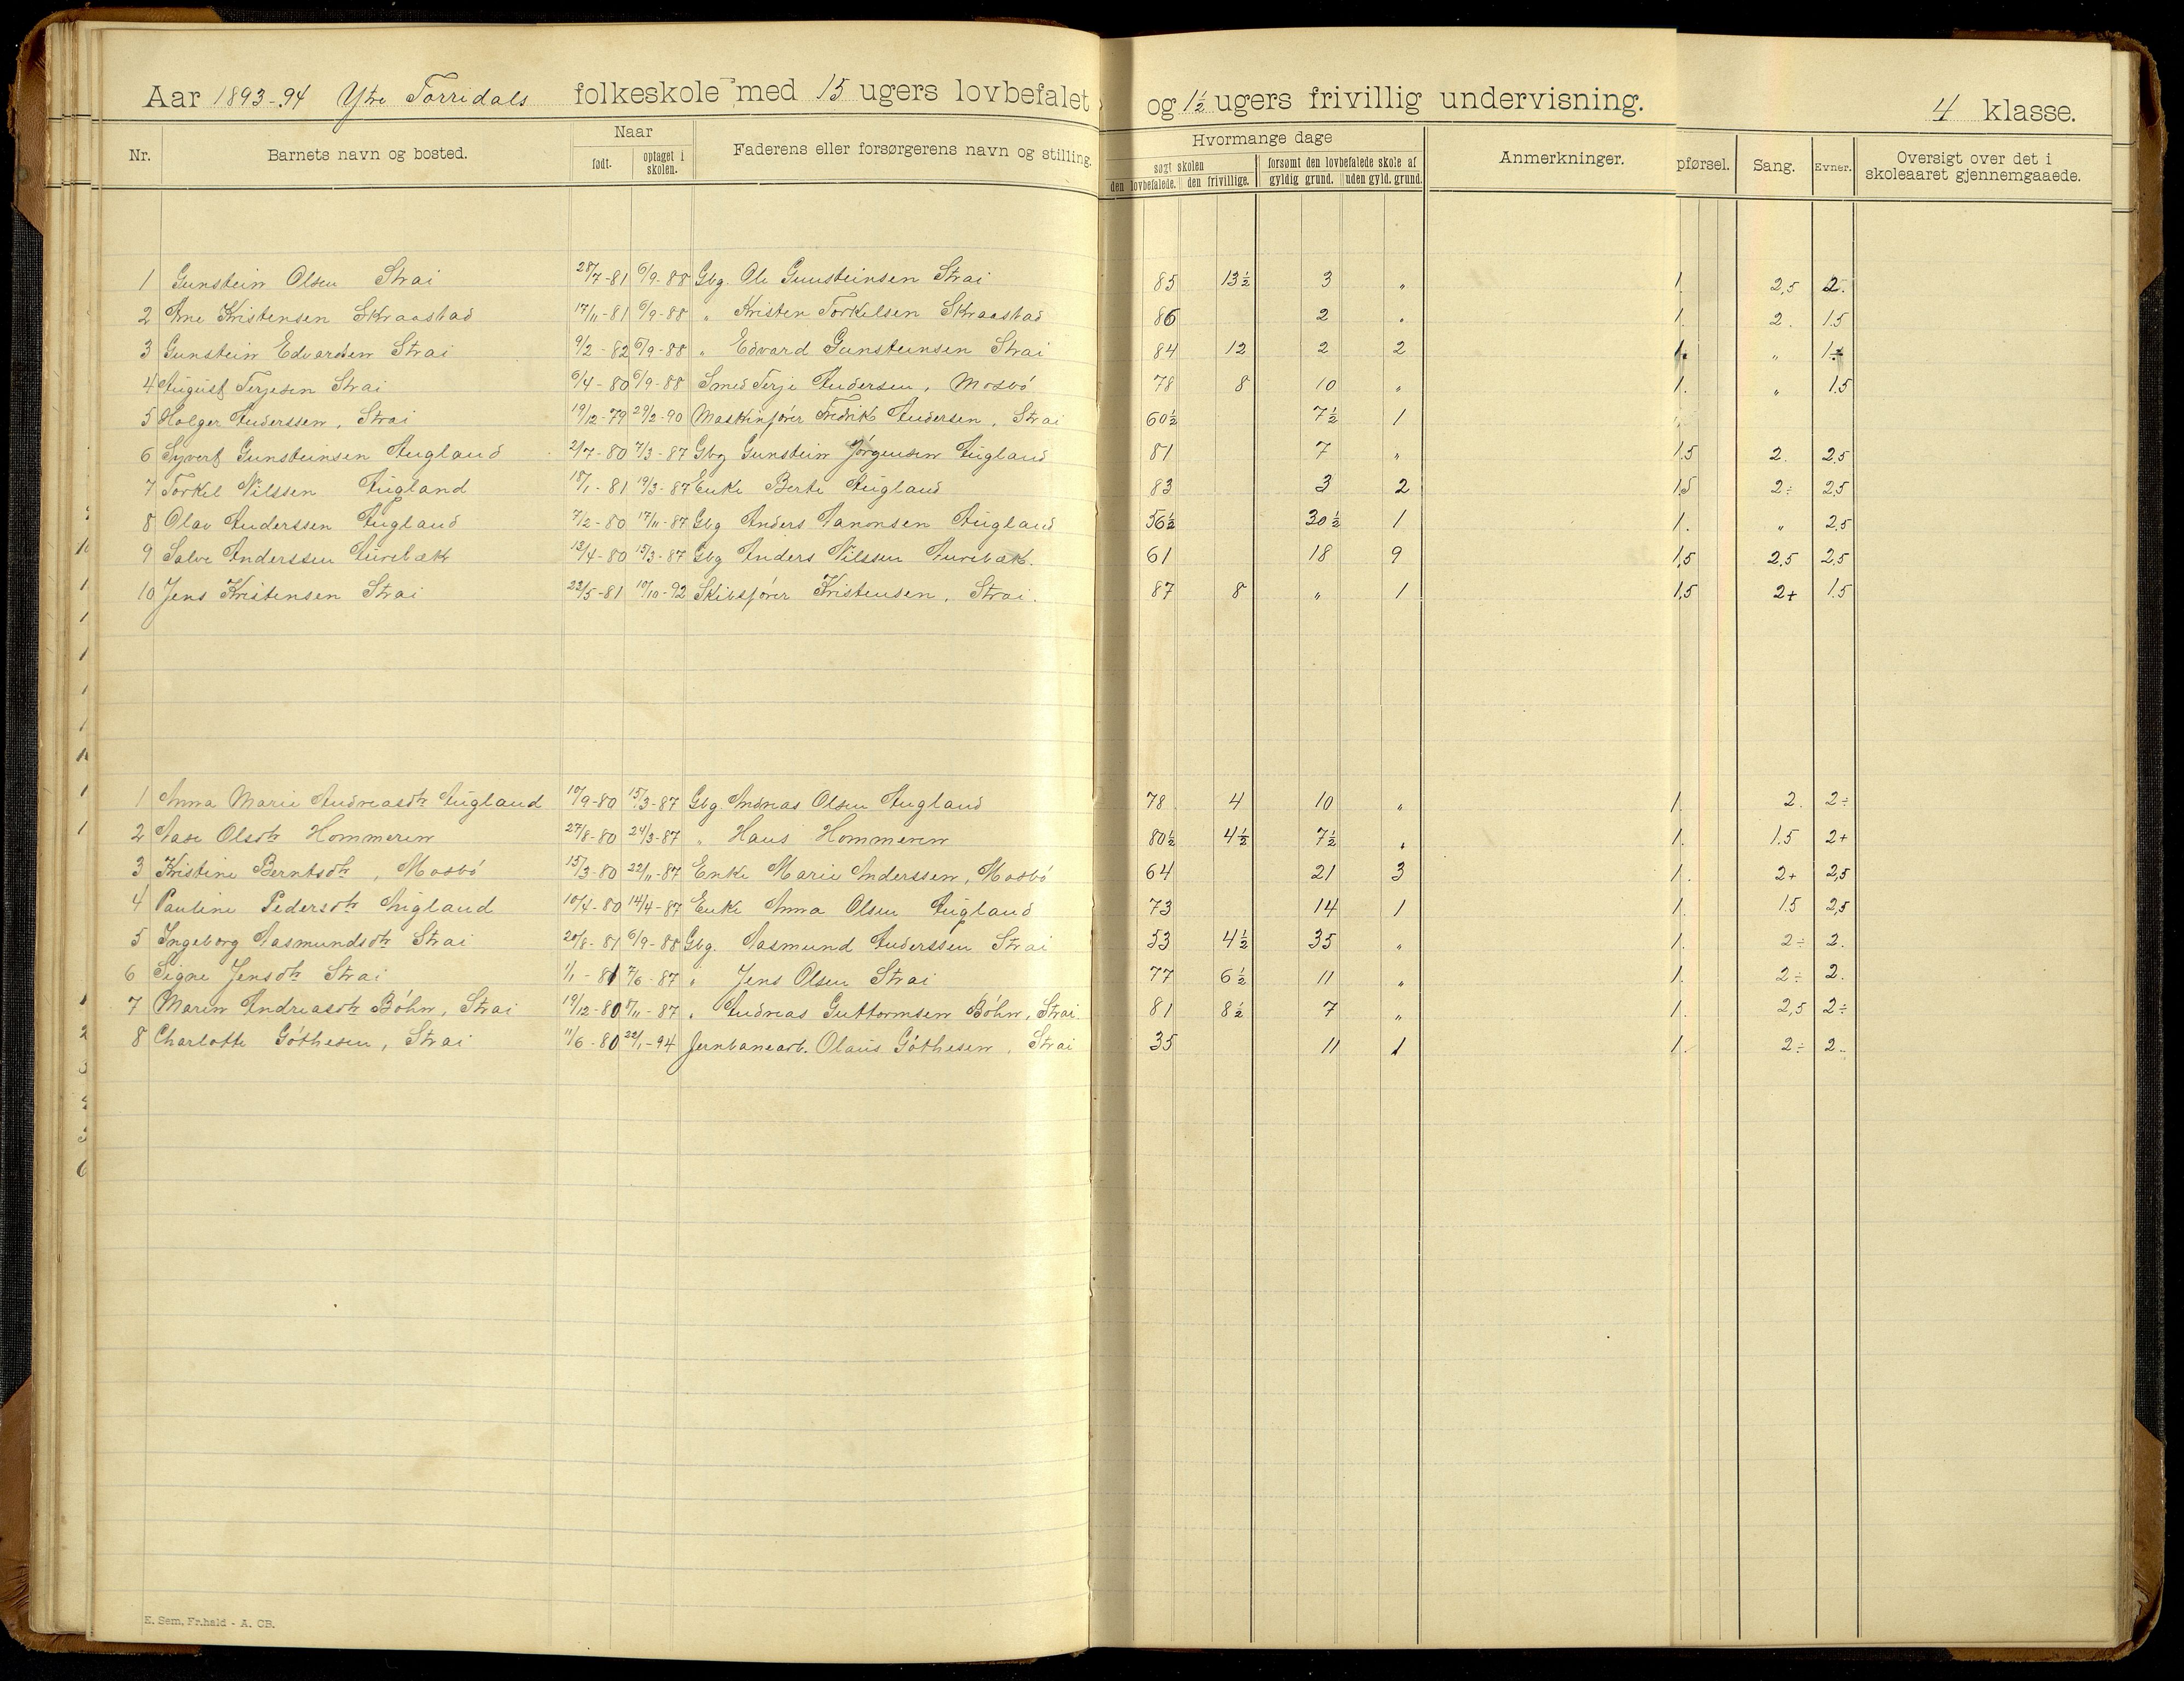 Aar 1893-94 Ytre Torridals folkeskole med 15 ugers lovbefalet og 1½ ugers frivillig undervisning. 4 klasse.
Nr. Barnets navn og bosted. Naar født. optaget i skolen. Faderens eller forsørgerens navn og stilling. Hvormange dage søgt skolen den lovbefalede. den frivillige. forsømt den lovbefalede skole af gyldig grund. uden gyld. grund. Anmerkninger. pførsel. Sang. Evner. Oversigt over det i skoleaaret gjennemgaaede.
1 Gunstein Olsen Strai 28/7-81 6/9-88 Gbg. Ole Gunsteinsen Strai 85 13½ 3 " 1. 2,5 2.
2 Arne Kristensen Skraastad 17/11-81 6/9-88 " Kristen Torkelsen Skraastad 86 2 " 1. 2. 1.5
3 Gunstein Edvardsen Strai 9/2-82 6/9-88 " Edvard Gunsteinsen Strai 84 12 2 2 1. " 1÷
4 August Terjesen Strai 6/4-80 6/9-88 Smed Terje Andersen, Mosbö 78 8 10 " 1. " 1.5
5 Holger Anderssen, Strai 19/12-79 29/2-90 Maskinförer Fredrik Andersen, Strai 60½ 7½ 1
6 Syvert Gunsteinsen Augland 2/7-80 7/3-87 Gbg Gunstein Jörgensen Augland 81 7 " 1.5 2. 2.5
7 Torkel Nilssen Augland 18/1-81 19/3-87 Enke Berte Augland 83 3 2 1.5 2÷ 2.5
8 Olav Anderssen Augland 7/2-80 17/11-87 Gbg Anders Aanonsen Augland 56½ 30½ 1 1. " 2.5
9 Salve Anderssen Aurebæk 13/4-80 15/3-87 Gbg Anders Nilssen Aurebæk. 61 18 9 1,5 2.5 2.5
10 Jens Kristensen Strai 22/5-81 10/10-92 Skibsförer Kristensen, Strai. 87 8 " 1 1,5 2+ 1.5
1 Anna Marie Andreasdtr Augland 10/9-80 15/3-87 Gbg. Andreas Olsen Augland 78 4 10 " 1. 2. 2÷
2 Aase Olsdtr Hommeren 27/8-80 24/3-87 " Hans Hommeren 80½ 4½ 7½ " 1. 1.5 2+
3 Kristine Berntsdtr, Mosbö 15/3-80 22/11-87 Enke Marie Anderssen, Mosbö 64 21 3 1. 2+ 2,5
4 Pauline Pedersdtr Augland 10/4-80 14/4-87 Enke Anna Olsen Augland 73 14 1 1. 1.5 2,5
5 Ingeborg Aasmundsdtr Strai 20/8-81 6/9-88 Gbg. Aasmund Anderssen Strai 53 4½ 35 " 1. 2÷ 2.
6 Signe Jensdtr Strai 1/1-81 7/6-87 " Jens Olsen Strai 77 6½ 11 " 1. 2÷ 2.
7 Maren Andreasdtr Böhn, Strai 19/12-80 17/11-87 " Andreas Guttormsen Böhn, Strai. 81 8½ 7 " 1. 2,5 2÷
8 Charlotte Göthesen, Strai 11/6-80 22/1-94 Jernbanearb. Olaus Göthesen, Strai 35 11 1 1. 2÷ 2.
E. Sem, Fr.hald - A. CB.